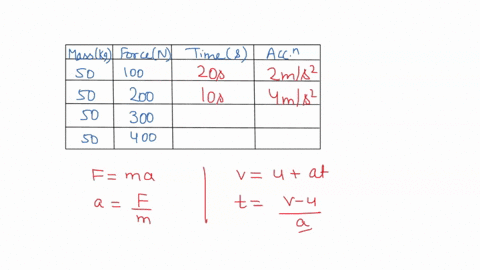 Mass(kg) Force(N) Time(s) Acc.n
50 100 20s 2m/s²
50 200 10s 4m/s²
50 300
50 400
F = ma
a = F/m
v = u + at
t = v-u/a